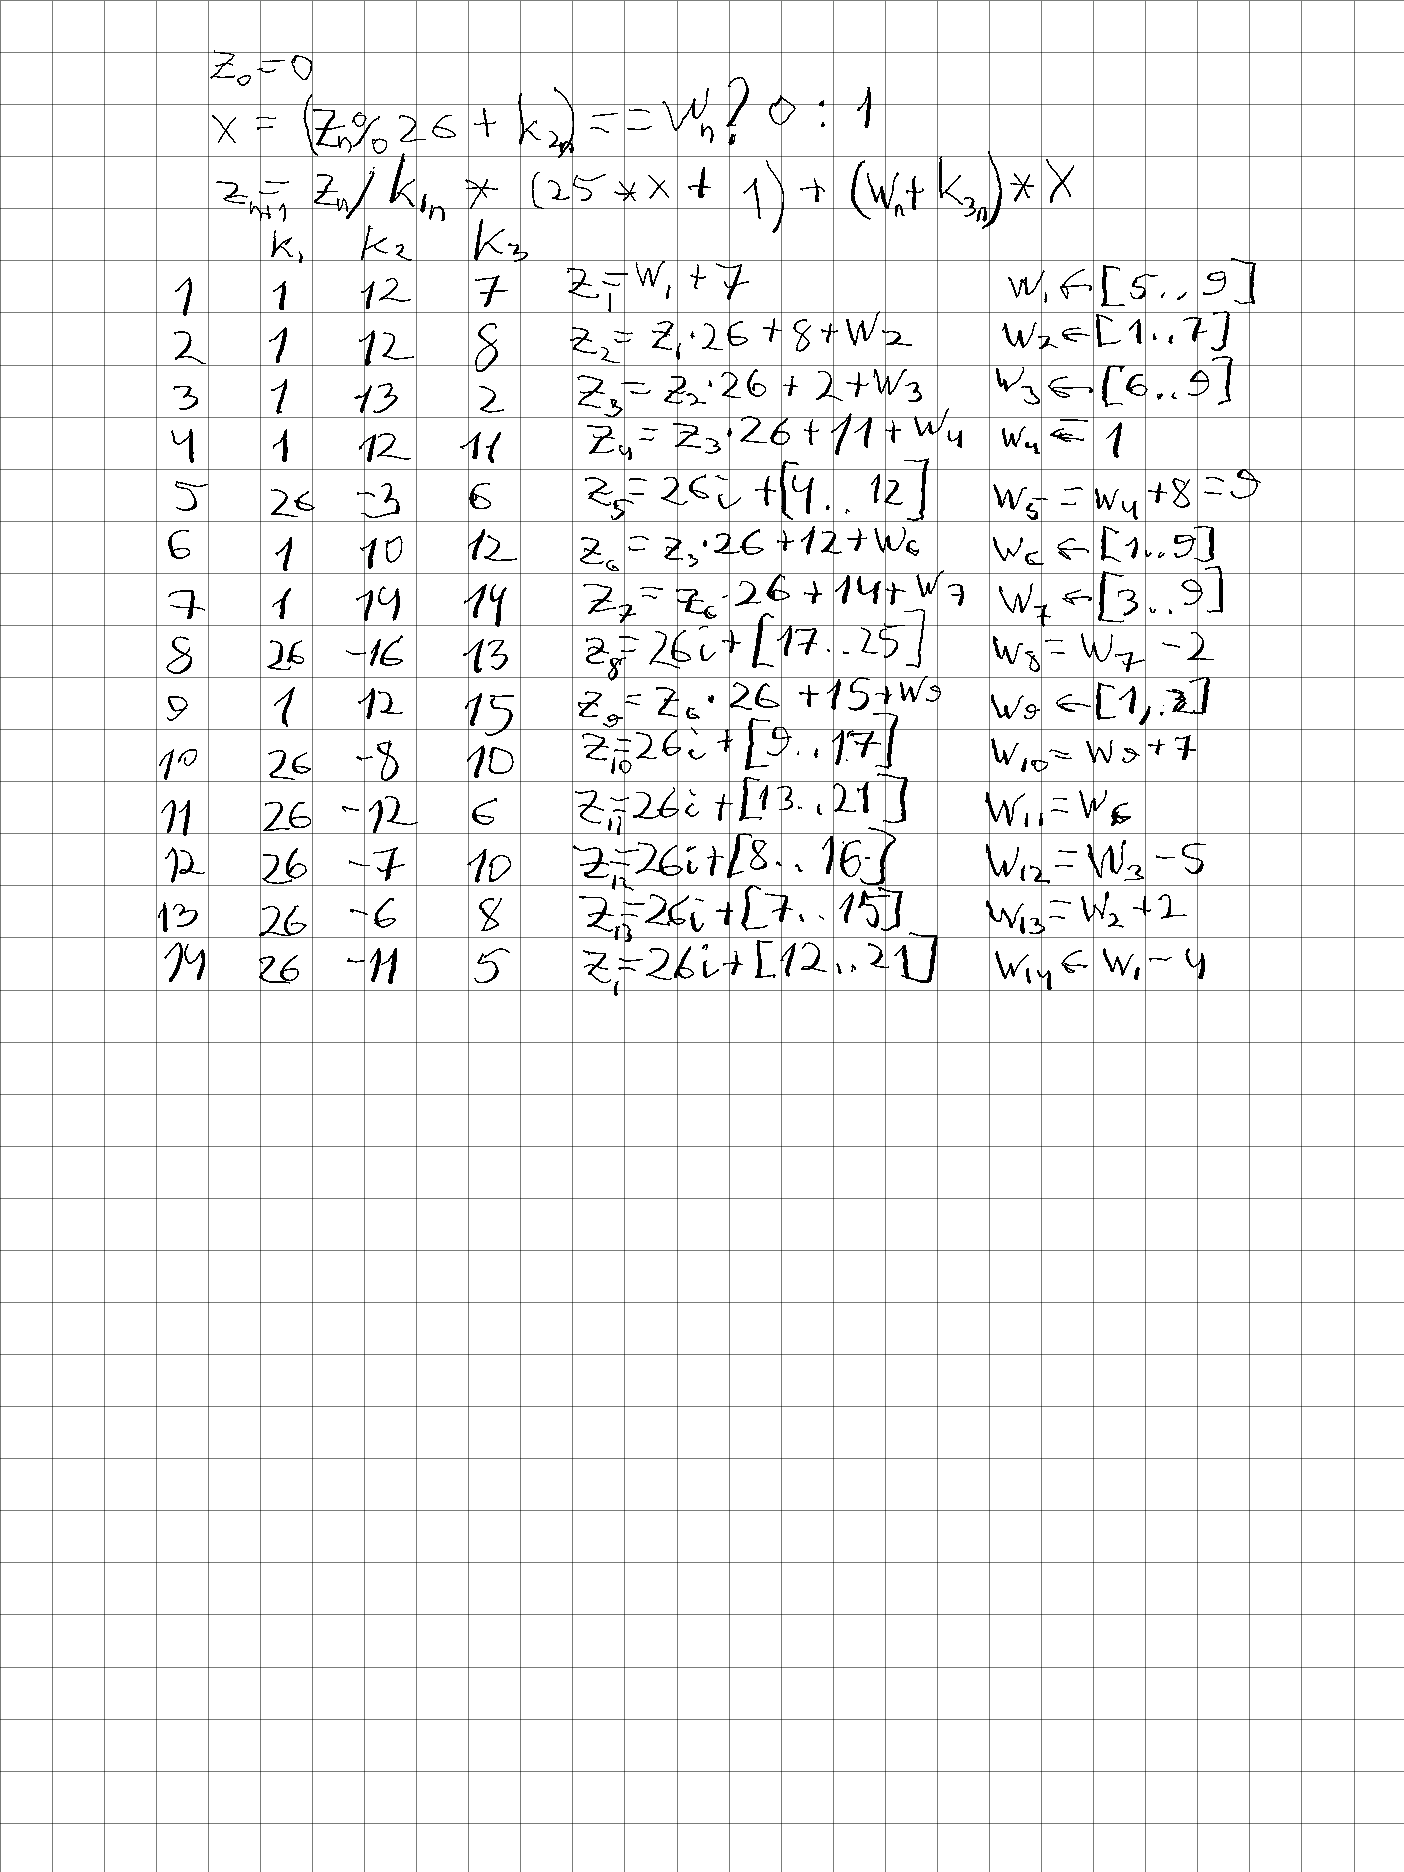 z₀ = 0
x = (zₙ % 26 + k₂ₙ) == wₙ ? 0 : 1
zₙ₊₁ = zₙ / k₁ₙ * (25 * x + 1) + (wₙ + k₃ₙ) * x
k₁ k₂ k₃
1 1 12 7 z₁ = w₁ + 7 w₁ ← [5..9]
2 1 12 8 z₂ = z₁·26 + 8 + w₂ w₂ ← [1..7]
3 1 13 2 z₃ = z₂·26 + 2 + w₃ w₃ ← [6..9]
4 1 12 11 z₄ = z₃·26 + 11 + w₄ w₄ ← 1
5 26 -3 6 z₅ = 26i + [4..12] w₅ = w₄ + 8 = 9
6 1 10 12 z₆ = z₃·26 + 12 + w₆ w₆ ← [1..9]
7 1 14 14 z₇ = z₆·26 + 14 + w₇ w₇ ← [3..9]
8 26 -16 13 z₈ = 26i + [17..25] w₈ = w₇ - 2
9 1 12 15 z₉ = z₆·26 + 15 + w₉ w₉ ← [1..2]
10 26 -8 10 z₁₀ = 26i + [9..17] w₁₀ = w₉ + 7
11 26 -12 6 z₁₁ = 26i + [13..21] w₁₁ = w₆
12 26 -7 10 z₁₂ = 26i + [8..16] w₁₂ = w₃ - 5
13 26 -6 8 z₁₃ = 26i + [7..15] w₁₃ = w₂ + 2
14 26 -11 5 z₁ = 26i + [12..21] w₁₄ ← w₁ - 4